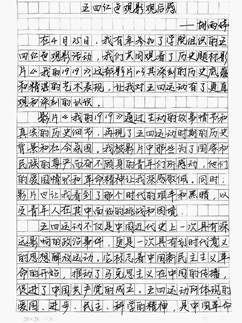 五四红色观影观后感
——胡雨婷
在4月25日，我有幸参加了学院组织的五
四红色观影活动，我们共同观看了历史题材影
片《我的1919》这部影片以其深刻的历史底蕴
和精湛的艺术表现，让我对五四运动有了更直
观和深刻的认识。
影片《我的1919》通过生动的故事情节和
真实的历史细节，再现了五四运动时期的历史
背景和社会氛围。我被影片中那些为了国家和
民族的尊严而奋不顾身的青年们所感动，他们
的爱国情怀和革命精神让我深感敬佩。同时，
影片也让我看到了那个时代的艰辛和黑暗，以
及青年人在其中面临的挑战和困境。
五四运动不仅是中国近代史上一次具有深
远影响的政治事件，更是一次具有划时代意义
的思想解放运动，它标志着中国新民主主义革
命的开始，推动了马克思主义在中国的传播，
促进了中国共产党的成立，五四运动所体现的
爱国、进步、民主、科学的精神，是中国革命